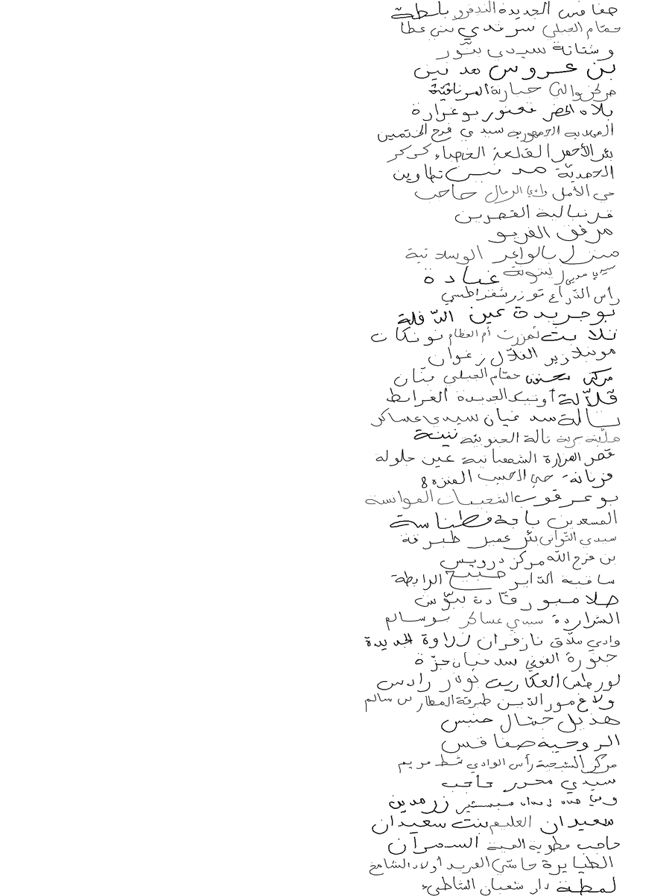 صفاقس الجديدة الندفور بلطة
حمّام الجبلي سرندي بني عطا
وشتاتة سيدي بنّور
بن عروس مدنين
مركز والي حبارنة المرناقيّة
بلاد الحضر تعنور بوغرارة
المهدية الجمهورية سيدي فرج الختمين
بئر الأحمر القلعة الخضراء كركر
الحمديّة مدنين تطاوين
حي الأمل وادي الرمال حاجب
قرنبالية القصرين
مرفق الفريو
منزل بالواعر الوسلاتية
سيدي زيتونة غبادة
رأس الذّراع توزر شقراطسي
بوجريدة عين الدّفلة
ثلابت تمزرت أم العظام نونكات
مونبلازير القلال زغوان
مركز سحنون حمّام الجبلي بنّان
قلالة أوتيك الجديدة الغرابط
تالة سدميان سيدي عساكر
تالة نبينة
قصر الفرارة الشعبانية عين جلولة
فرنانة حي الحبيب المنزه 8
بوعرقوب الشعيبات الفوانسة
المسعدين باجة فطناسة
سيدي التواتي بئر عمير طبرقة
بن فرج الله مركز درويس
ساقية الدّاير خنيّج الرابطة
صلامبو رقّادة ببّوش
الشراردة سيدي عساكر بوسالم
وادي ملاّق تازغران زلاوة الجديدة
خنّورة الغوني سدميان حزّة
لورطس العكاريت بودر رادس
طبرقة العطار بن سالم
هذيل جمّال حنبس
الروحية صفاقس
مركز الشيحية رأس الوادي شط مريم
سيدي محرز حاجب
زرمدين
سعيدان العليم بنت سعيدان
حاجب مطوية العيينة السمران
الطبايرة حاسي الفريد أولاد الشامخ
لمطة دار شعبان الشاطئ